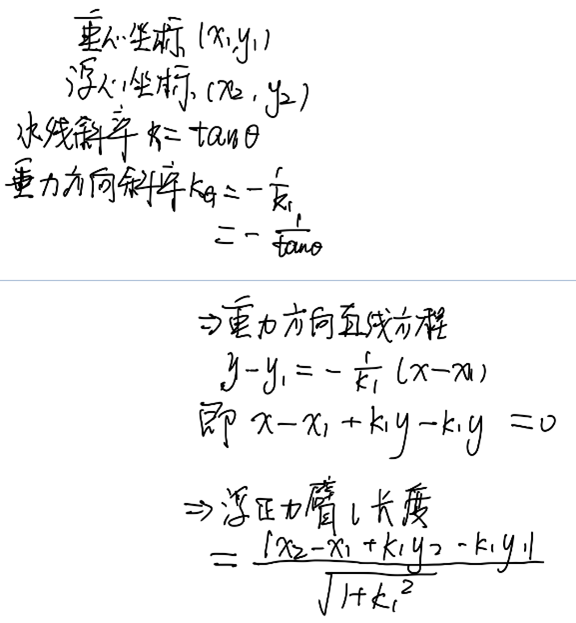 重心坐标 (x₁y₁)
浮心坐标 (x₂, y₂)
水线斜率 k = tanθ
重力方向斜率 k_G = -1/k₁
= -1/tanθ
⇒重力方向直线方程
y-y₁ = -1/k₁ (x-x₁)
即 x-x₁+k₁y-k₁y =0
⇒浮正力臂 l 长度
= |x₂-x₁+k₁y₂-k₁y₁|/√(1+k₁²)